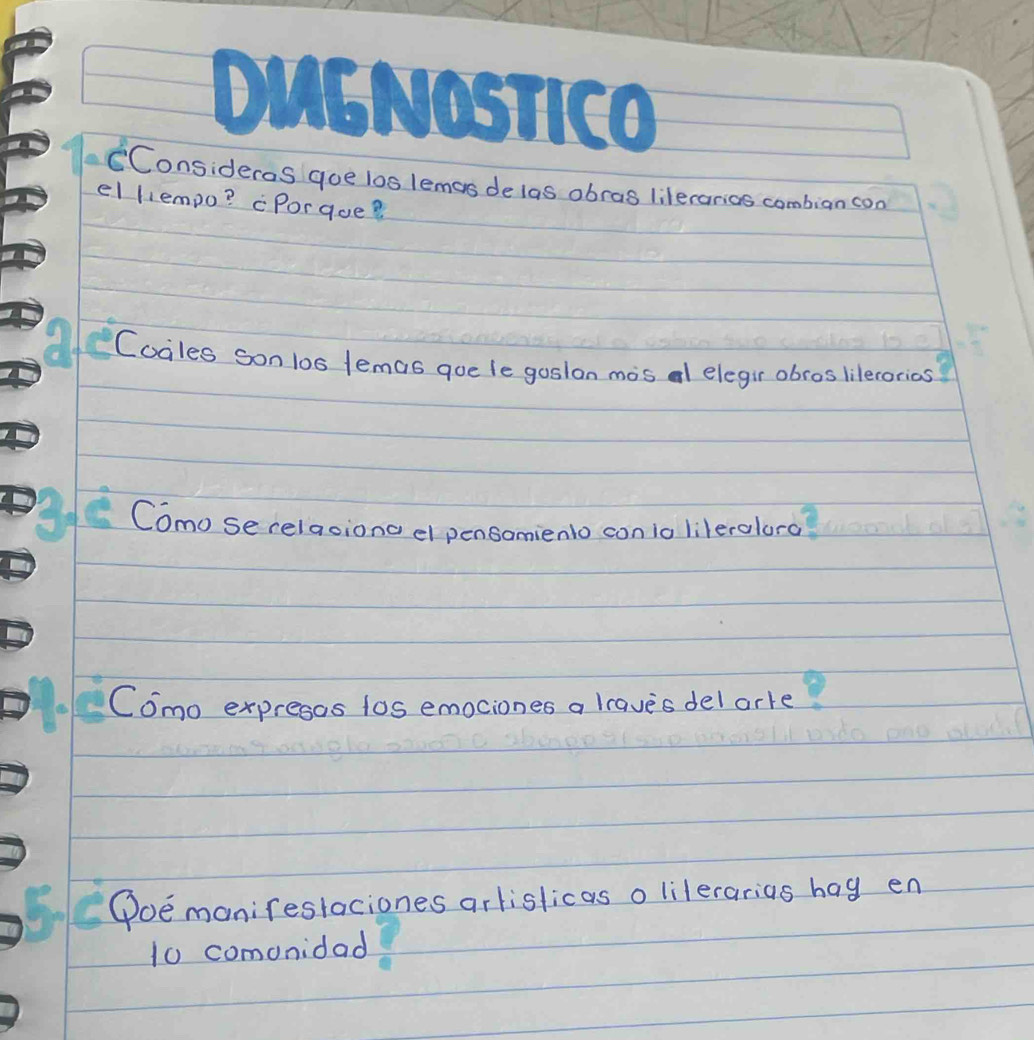 DIAGNOSTICO
1-¿Consideras que los temas de las obras literarias cambian con
el tiempo? ¿Porque?
2.¿Cuáles son los temas que le gustan más al elegir obras literarias?
3.¿Cómo se relaciona el pensamiento con la literatura?
4.¿Cómo expresas tus emociones a través del arte?
5-¿Qué manifestaciones artisticas o literarias hay en
tu comunidad?